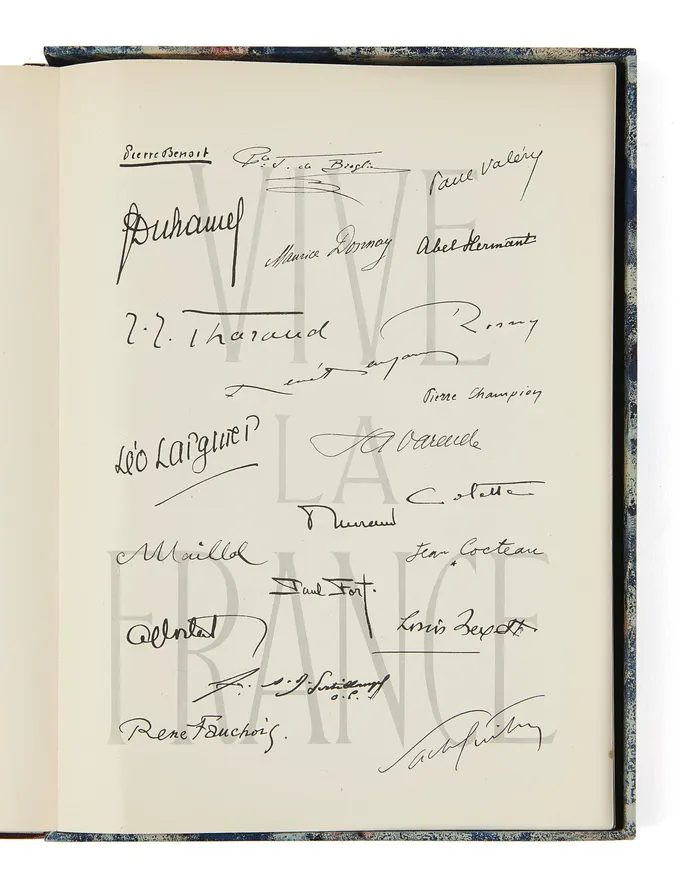 Pierre Benoit
de Broglie
Paul Valéry
Duhamel
Maurice Donnay
Abel Hermant
VIVE
J.-J. Tharaud
Rosny
Pierre Champion
Léo Larguier
LA
La Varende
Colette
Maillol
Jean Cocteau
Paul Fort.
A. Cortot
FRANCE
A. D. Sertillanges
o.p.
René Fauchois.
Sacha Guitry